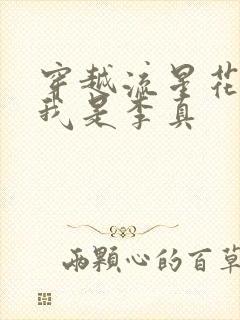 穿越流星花
我是李真
两颗心的百草